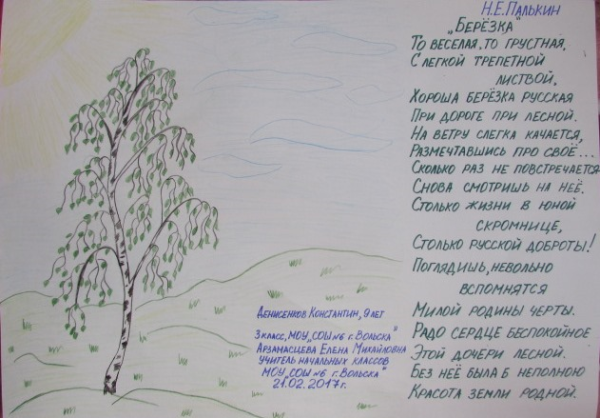 Н.Е.Палькин
„Берёзка“
То веселая, то грустная,
С легкой трепетной
листвой,
Хороша берёзка русская
При дороге при лесной.
На ветру слегка качается,
Размечтавшись про своё...
Сколько раз не повстречается
Снова смотришь на неё.
Столько жизни в юной
скромнице,
Столько русской доброты!
Поглядишь, невольно
вспомнятся
Милой родины черты.
Радо сердце беспокойное
Этой дочери лесной.
Без неё была б неполною
Красота земли родной.
Денисенков Константин, 9 лет
3 класс, МОУ „СОШ №6 г. Вольска“
Арзамасцева Елена Михайловна
учитель начальных классов
МОУ „СОШ №6 г. Вольска“
21.02.2017г.